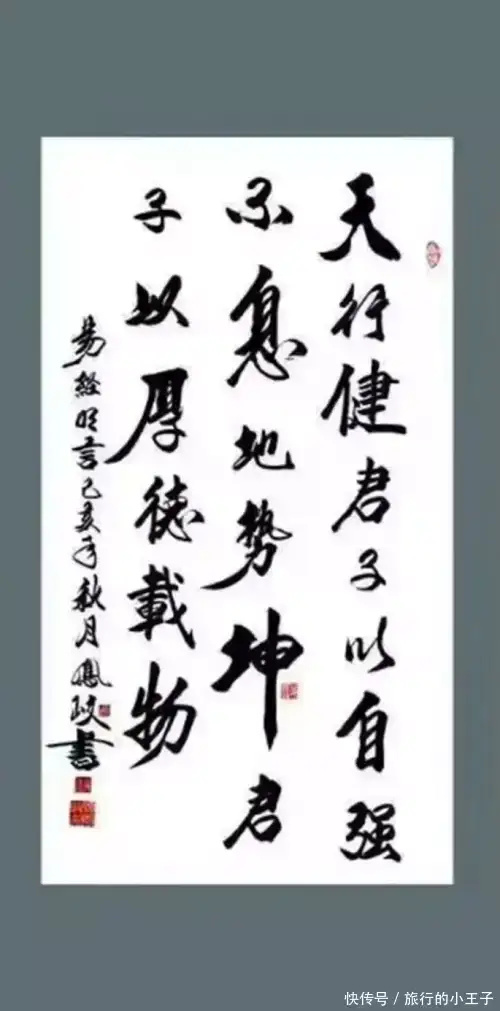 天行健君子以自强
不息地势坤君
子以厚德載物
易经名言己亥年秋月鳳書
快传号 / 旅行的小王子